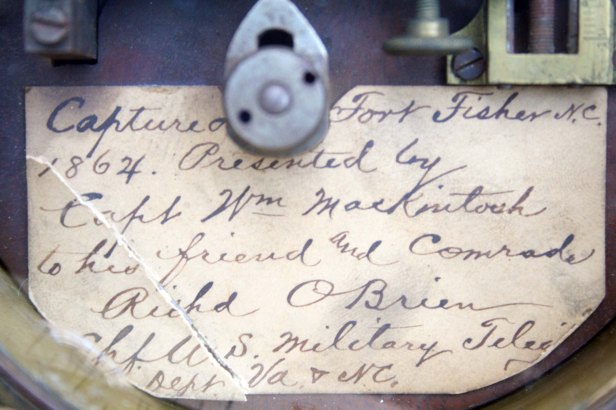 Captured Fort Fisher N.C.
1864. Presented by
Capt Wm Mackintosh
to his friend and Comrade
Richd O'Brien
Chf U.S. Military Teleg
Dept Va & NC.